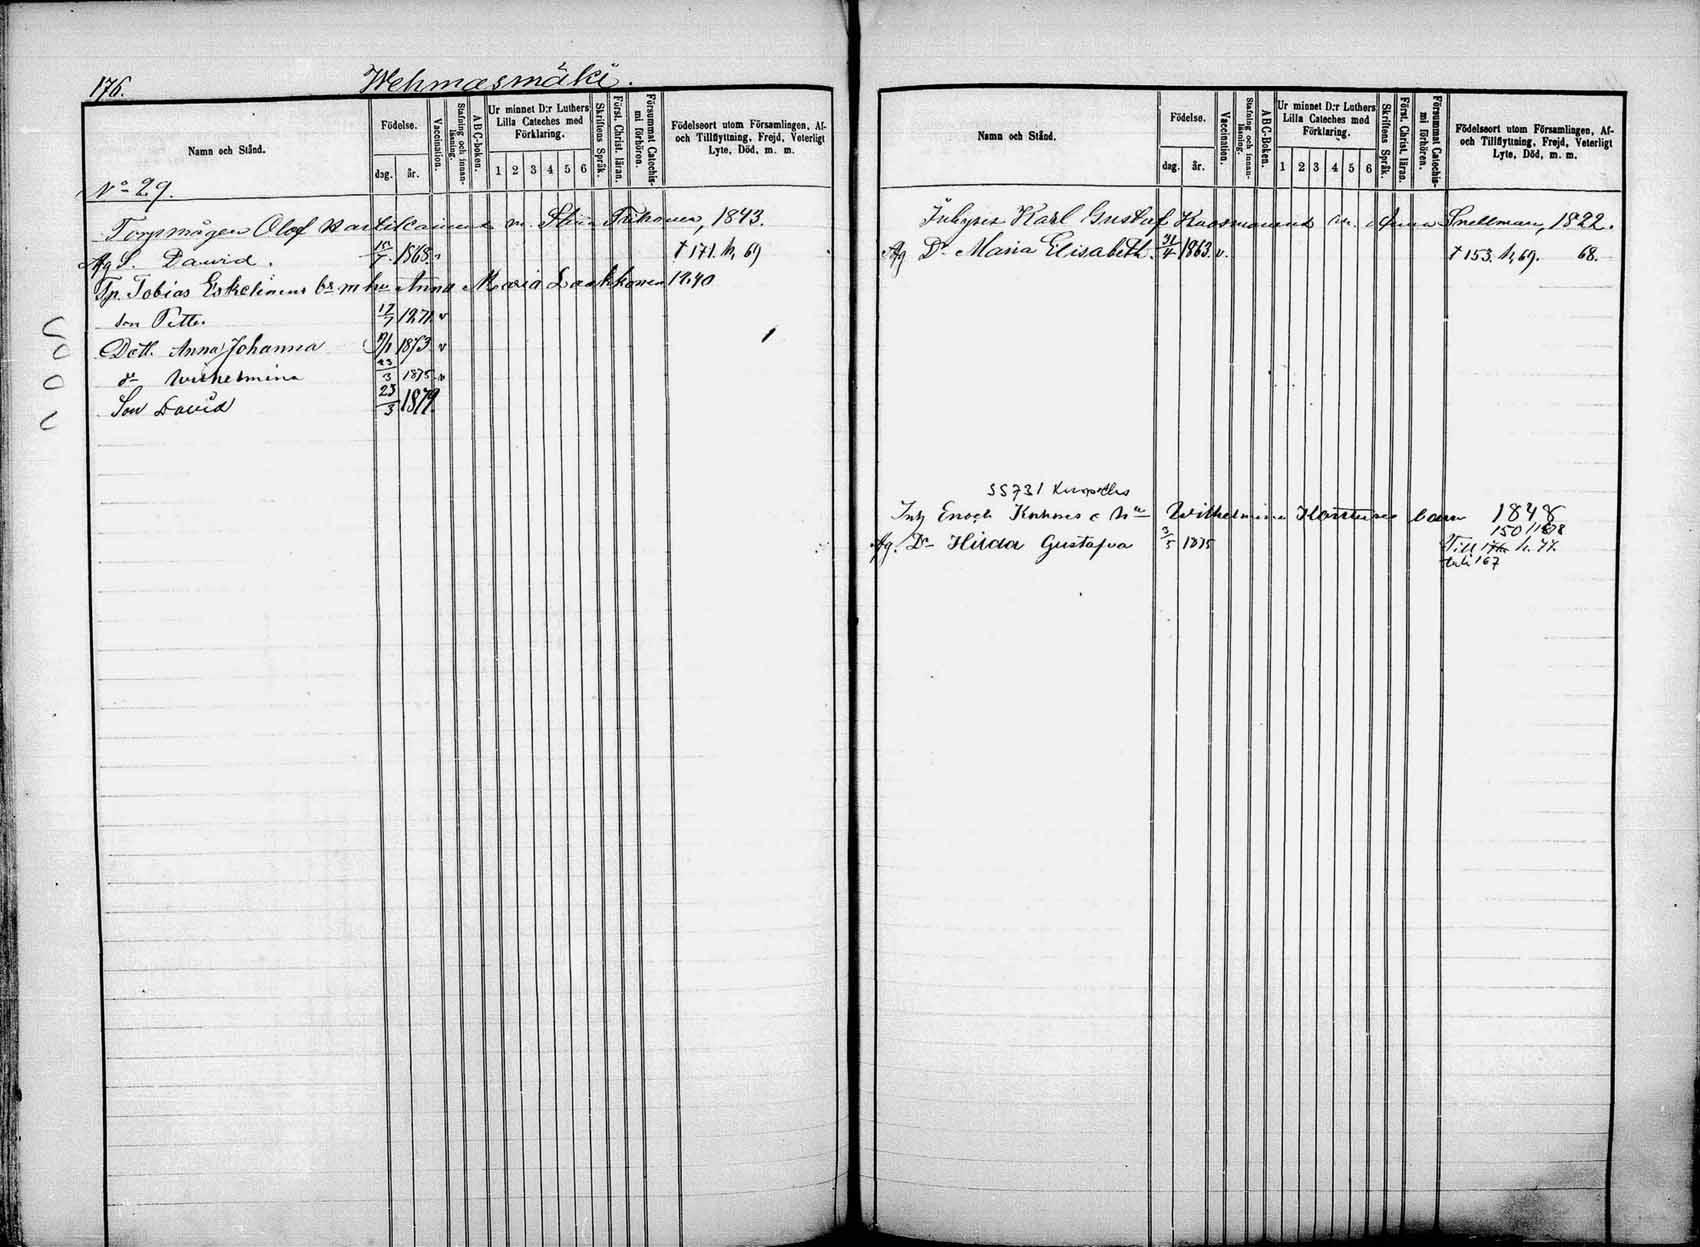 176.
Wehmasmäki.
Namn och Stånd.
Födelse.
dag. år.
Vaccination.
Stafning och innan-läsning.
ABC-boken.
Ur minnet D:r Luthers Lilla Cateches med Förklaring.
1 2 3 4 5 6
Skriftens Språk.
Först. Christ. läran.
Försummat Catechis-mi förhören.
Födelseort utom Församlingen, Af- och Tillflyttning, Frejd, Veterligt Lyte, Död, m. m.
No 29.
Torpmågen Olof Partikainens m. Stina Tuhanen, 1843.
Afg S. Dawid. 1868. v † 171. h, 69
Tp. Tobias Eskelinens br m hu Anna Maria Laakkonen 1840
son Petter 17/7 1871 v
Dott. Anna Johanna 1873 v
d:r Wilhelmina 23/3 1875 v
Son David 23/3 1879
Namn och Stånd.
Födelse.
dag. år.
Vaccination.
Stafning och innan-läsning.
ABC-Boken.
Ur minnet D:r Luthers Lilla Cateches med Förklaring.
1 2 3 4 5 6
Skriftens Språk.
Först. Christ. läran.
Försummat Catechis-mi förhören.
Födelseort utom Församlingen, Af- och Tillflyttning, Frejd, Veterligt Lyte, Död, m. m.
Inhyses Karl Gustaf Kaasmanens m. Anna Snellman, 1822.
Afg Dr Maria Elisabeth. 1863. v. † 153. h, 69. 68.
SS 731 Kuopio
Inh Enoch Kuhnes c hu Wilhelmina barn 1848
150
Afg. Dr Hilda Gustafva 3/5 1875 Till h. 77.
167